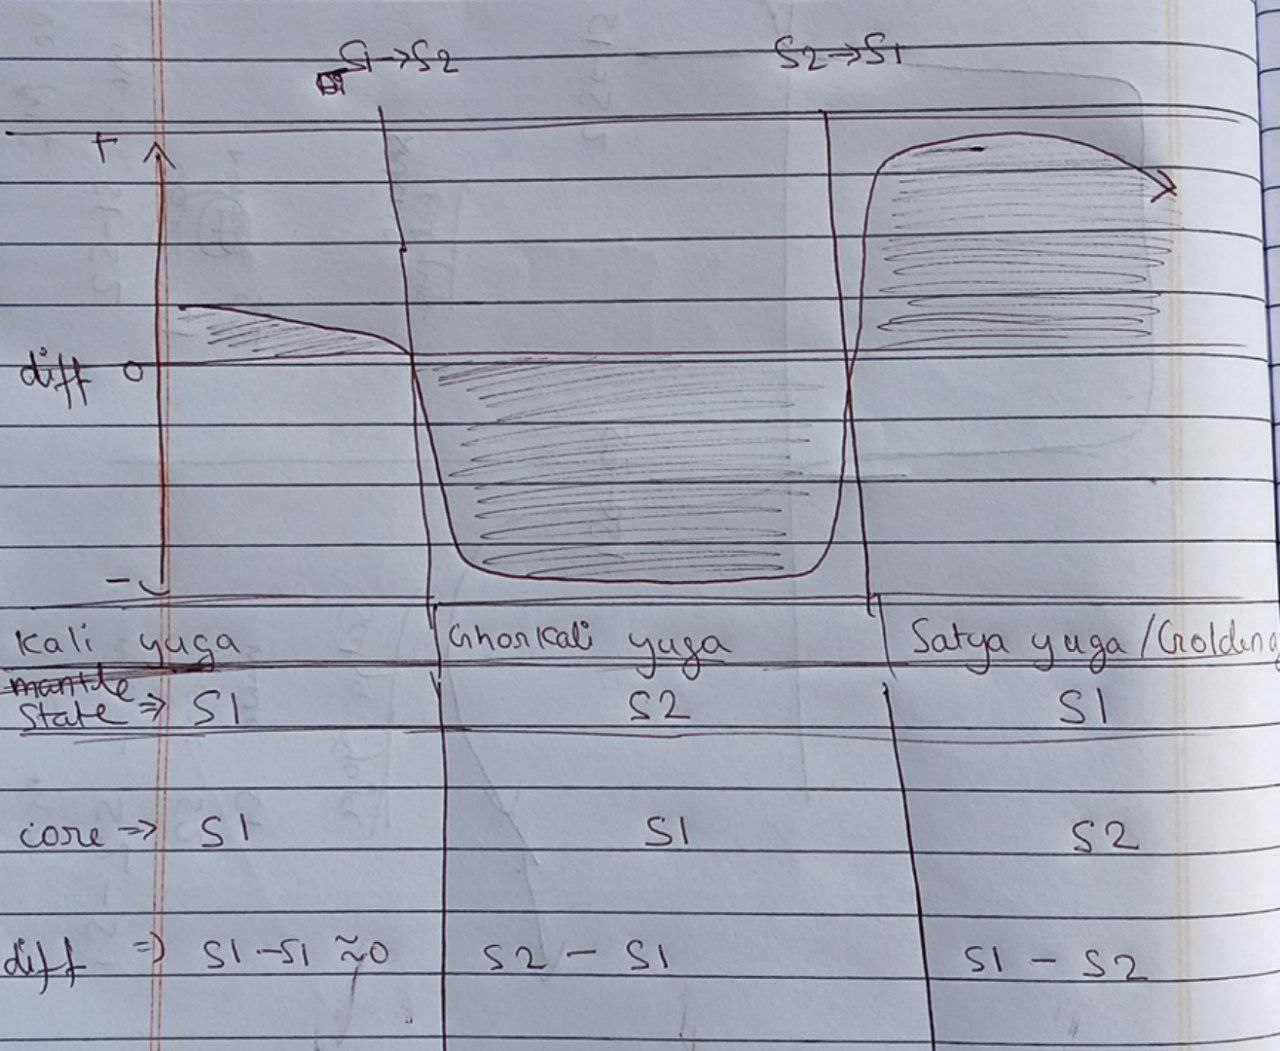 S1→S2
S2→S1
+
diff 0
-
Kali yuga
Ghorkali yuga
Satya yuga / Golden
mantle
State ⇒ S1
S2
S1
core ⇒ S1
S1
S2
diff ⇒ S1 - S1 ≈ 0
S2 - S1
S1 - S2